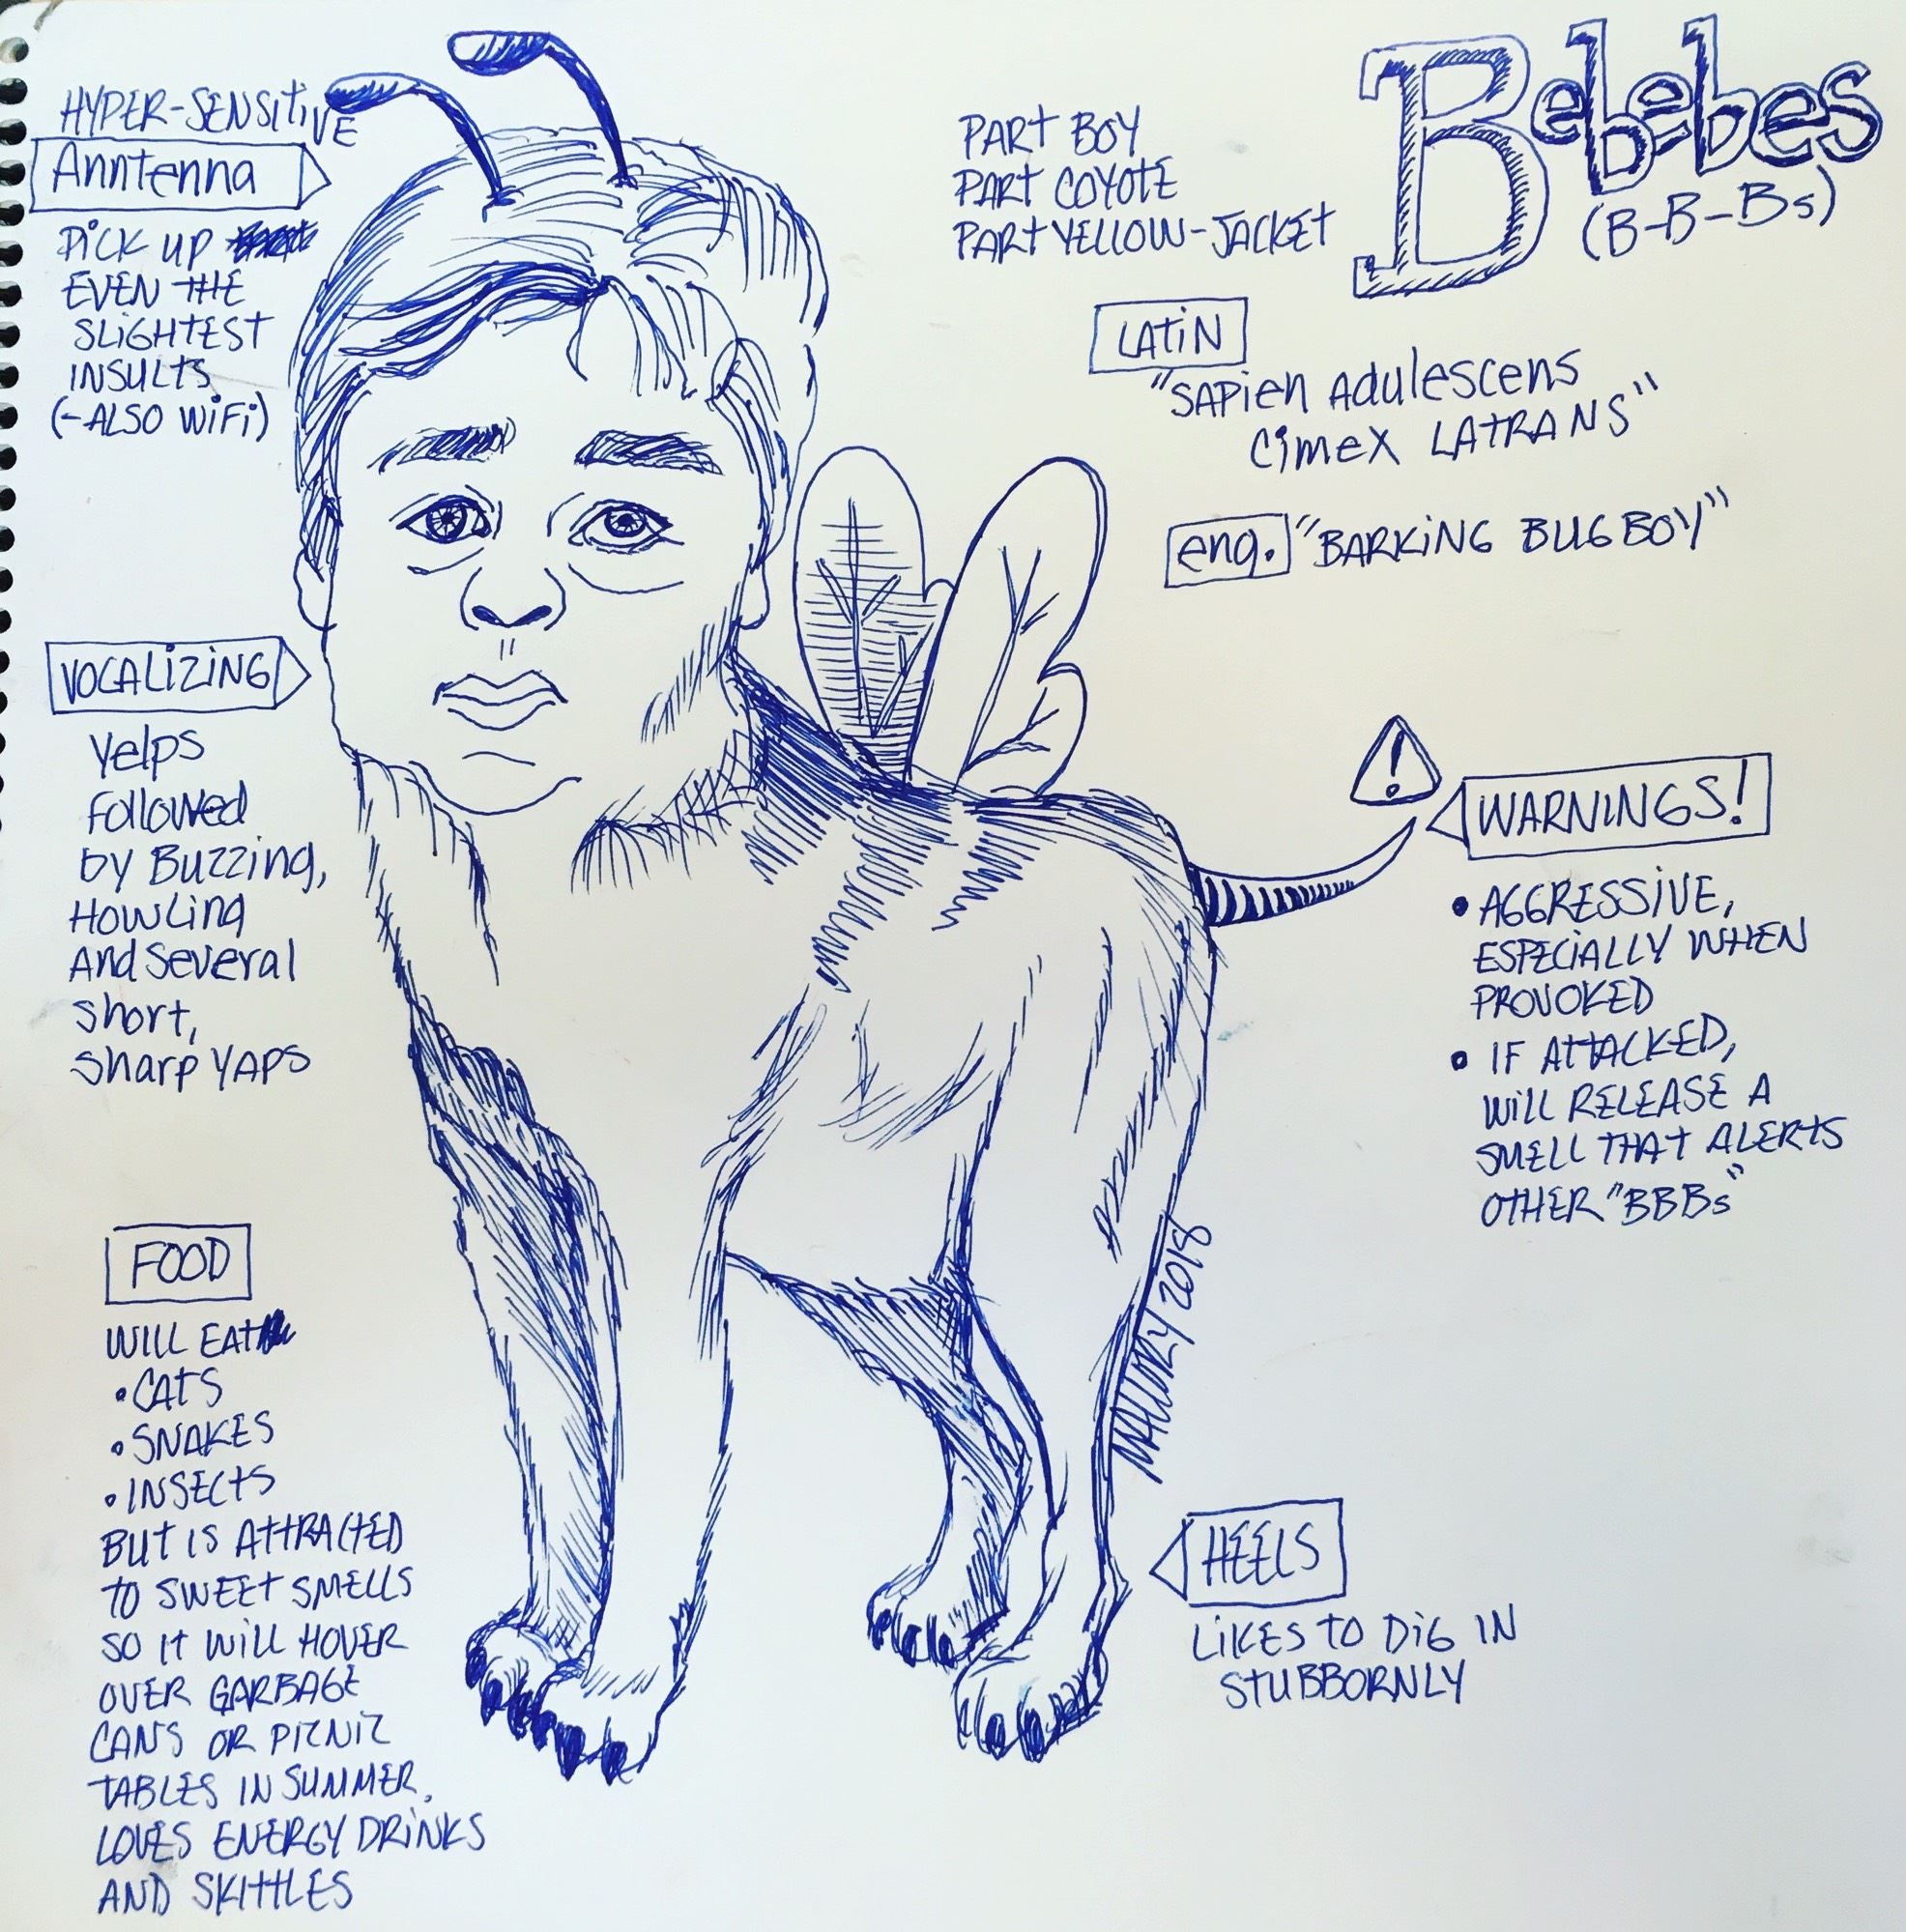 HYPER-SENSITIVE
Anntenna
PICK UP
EVEN THE
SLIGHTEST
INSULTS
(-ALSO WIFI)
VOCALIZING
Yelps
followed
by Buzzing,
Howling
And Several
Short,
Sharp YAPS
FOOD
WILL EAT
• CATS
• SNAKES
• INSECTS
BUT IS ATTRACTED
TO SWEET SMELLS
SO IT WILL HOVER
OVER GARBAGE
CANS OR PICNIC
TABLES IN SUMMER.
LOVES ENERGY DRINKS
AND SKITTLES
PART BOY
PART COYOTE
PART YELLOW-JACKET
Bebebes
(B-B-Bs)
LATIN
"SAPien Adulescens
Cimex LATRANS"
eng. "BARKING BUGBOY"
!
WARNINGS!
• AGGRESSIVE,
ESPECIALLY WHEN
PROVOKED
• IF ATTACKED,
WILL RELEASE A
SMELL THAT ALERTS
OTHER "BBBs"
MALLORY 2018
HEELS
LIKES TO DIG IN
STUBBORNLY